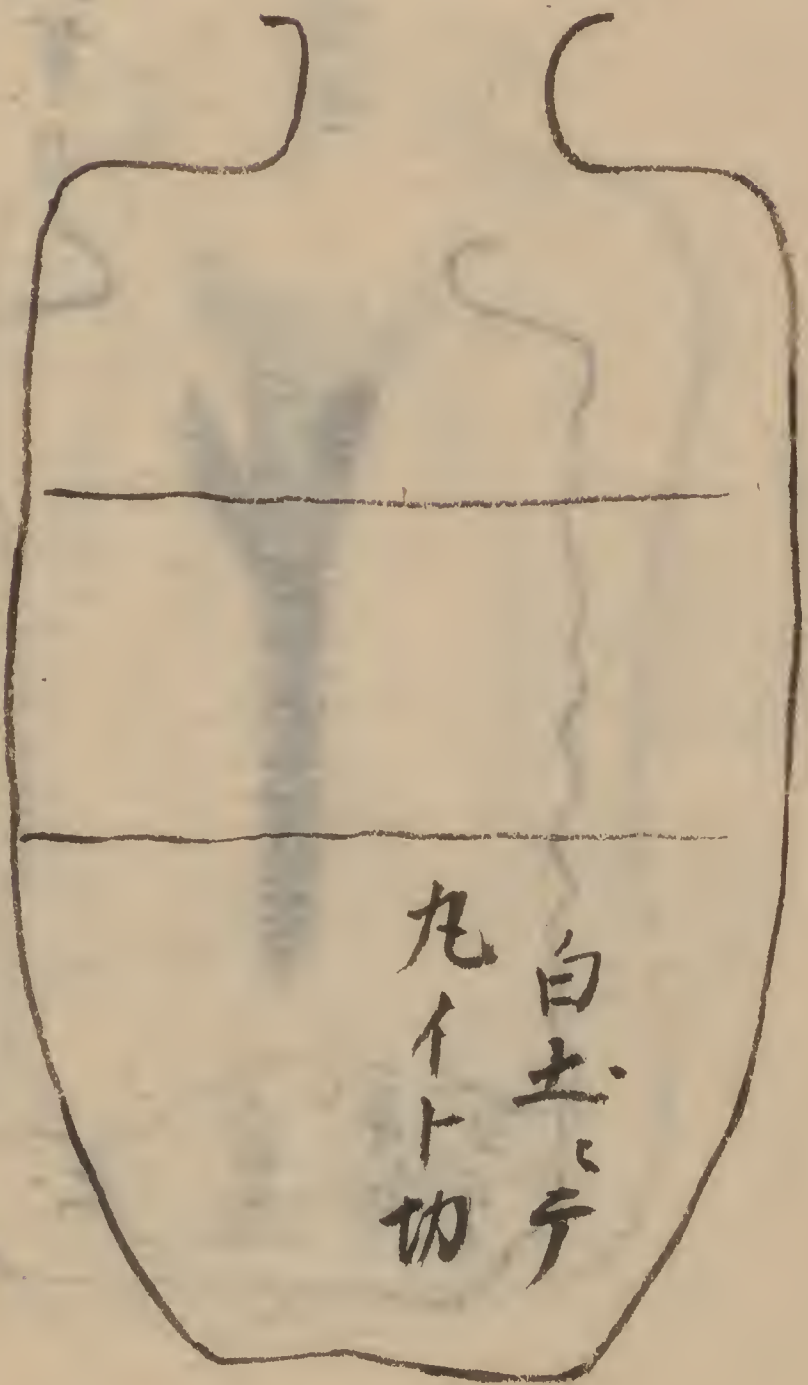 白土ニテ
丸イト切